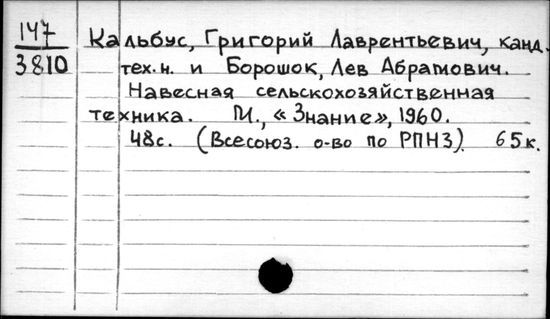 147
3810
Кальбус, Григорий Лаврентьевич, канд.
тех.н. и Борошок, Лев Абрамович.
Навесная сельскохозяйственная
техника. М., «Знание», 1960.
48с. (Всесоюз. о-во по РПНЗ). 65к.